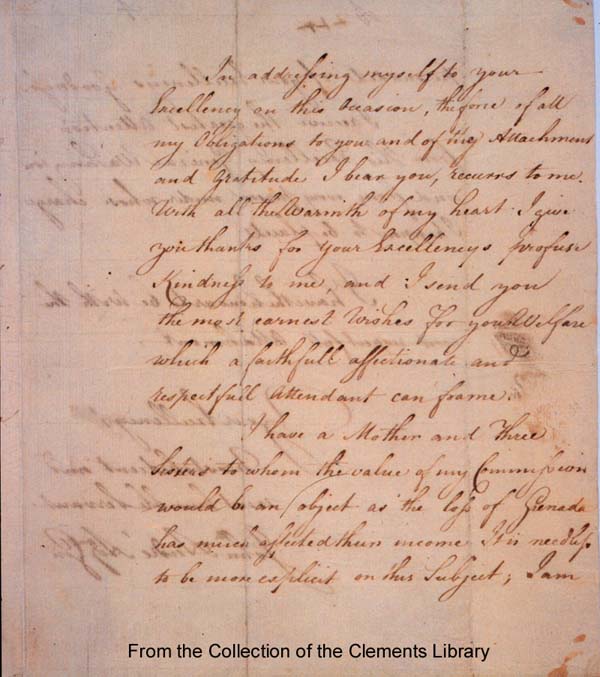 In addressing myself to your
Excellency on this Occasion, the force of all
my Obligations to you and of my Attachment
and Gratitude I bear you, recurrs to me.
With all the Warmth of my heart I give
you thanks for your Excellencys profuse
Kindness to me, and I send you
the most earnest Wishes for your Welfare
which a faithfull affectionate and
respectfull Attendant can frame.
I have a Mother and Three
Sisters to whom the value of my Commission
would be an object as the loss of Grenada
has much affected their income It is needless
to be more explicit on this Subject; I am
From the Collection of the Clements Library